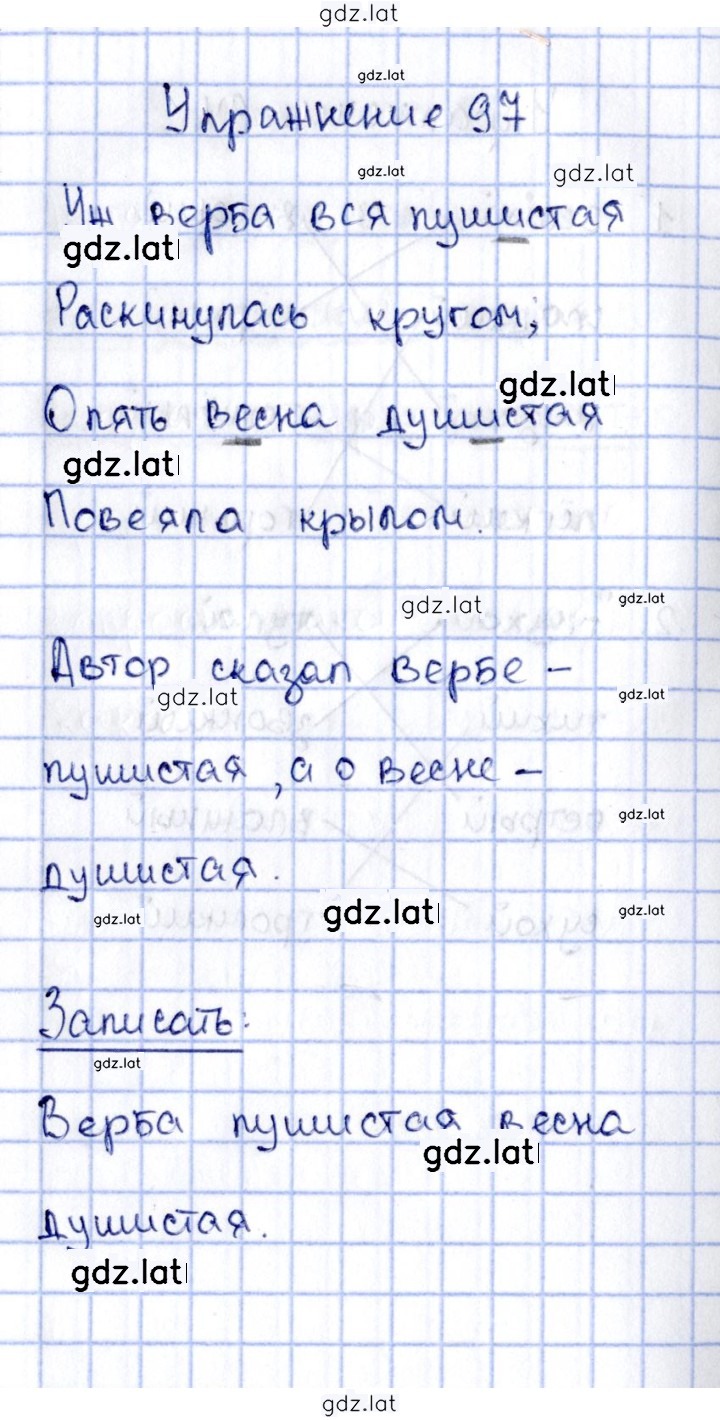 gdz.lat
gdz.lat
Упражнение 97
gdz.lat
gdz.lat
Уж верба вся пушистая
gdz.lat
Раскинулась кругом,
gdz.lat
Опять весна душистая
gdz.lat
Повеяла крылом.
gdz.lat
gdz.lat
Автор сказал вербе –
gdz.lat
gdz.lat
пушистая, а о весне –
gdz.lat
душистая.
gdz.lat
gdz.lat
gdz.lat
Записать:
gdz.lat
Верба пушистая весна
gdz.lat
душистая.
gdz.lat
gdz.lat